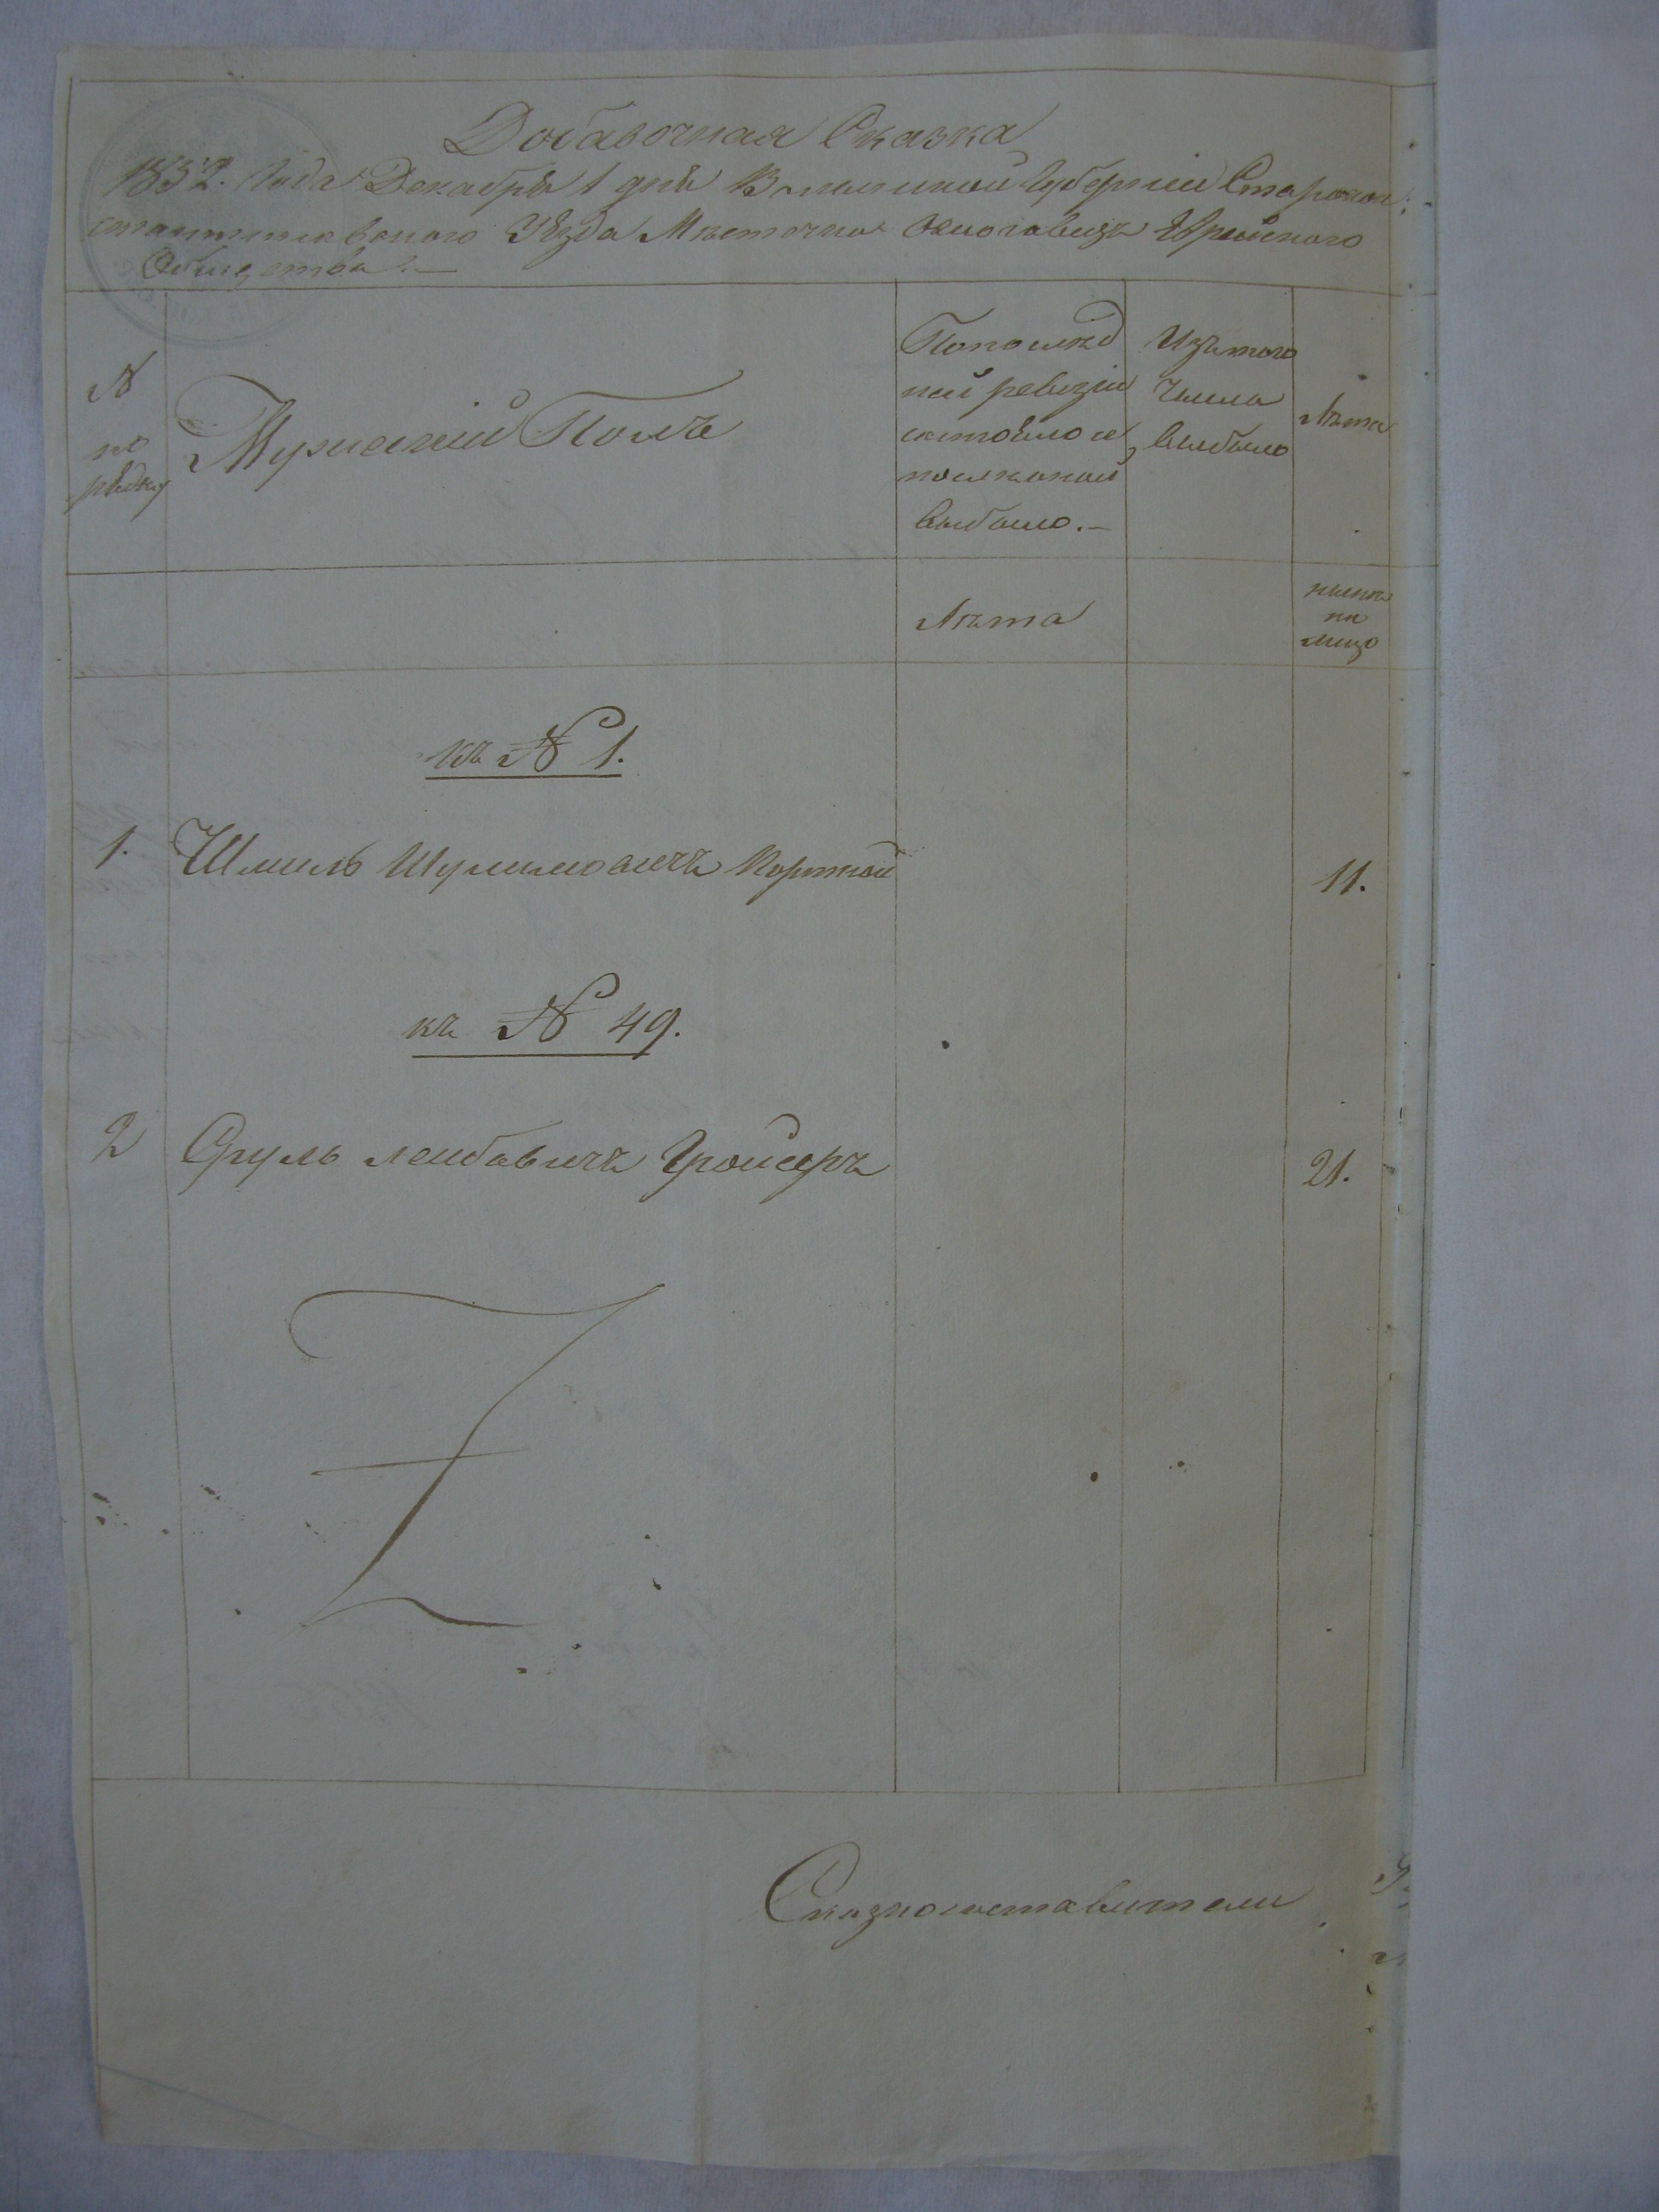 Добавочная Сказка
1852. Года Декабря 1 дня Волынской Губернии Старокон:
стантиновского Уѣзда Мѣстечка Еврейского
Общества.—
№
по
рядку
Мужескій Полъ
По послѣд
ней ревизіи
состояло и
послѣ оной
выбыло.—
Изъ того
числа
выбыло
Лѣта
Лѣта
нынѣ
на
лицо
къ № 1.
1. Шмиль Шулимовичъ Корткой 11.
къ № 49.
2 Сруль Лейбовичъ Гройсеръ 21.
Сказкосоставители